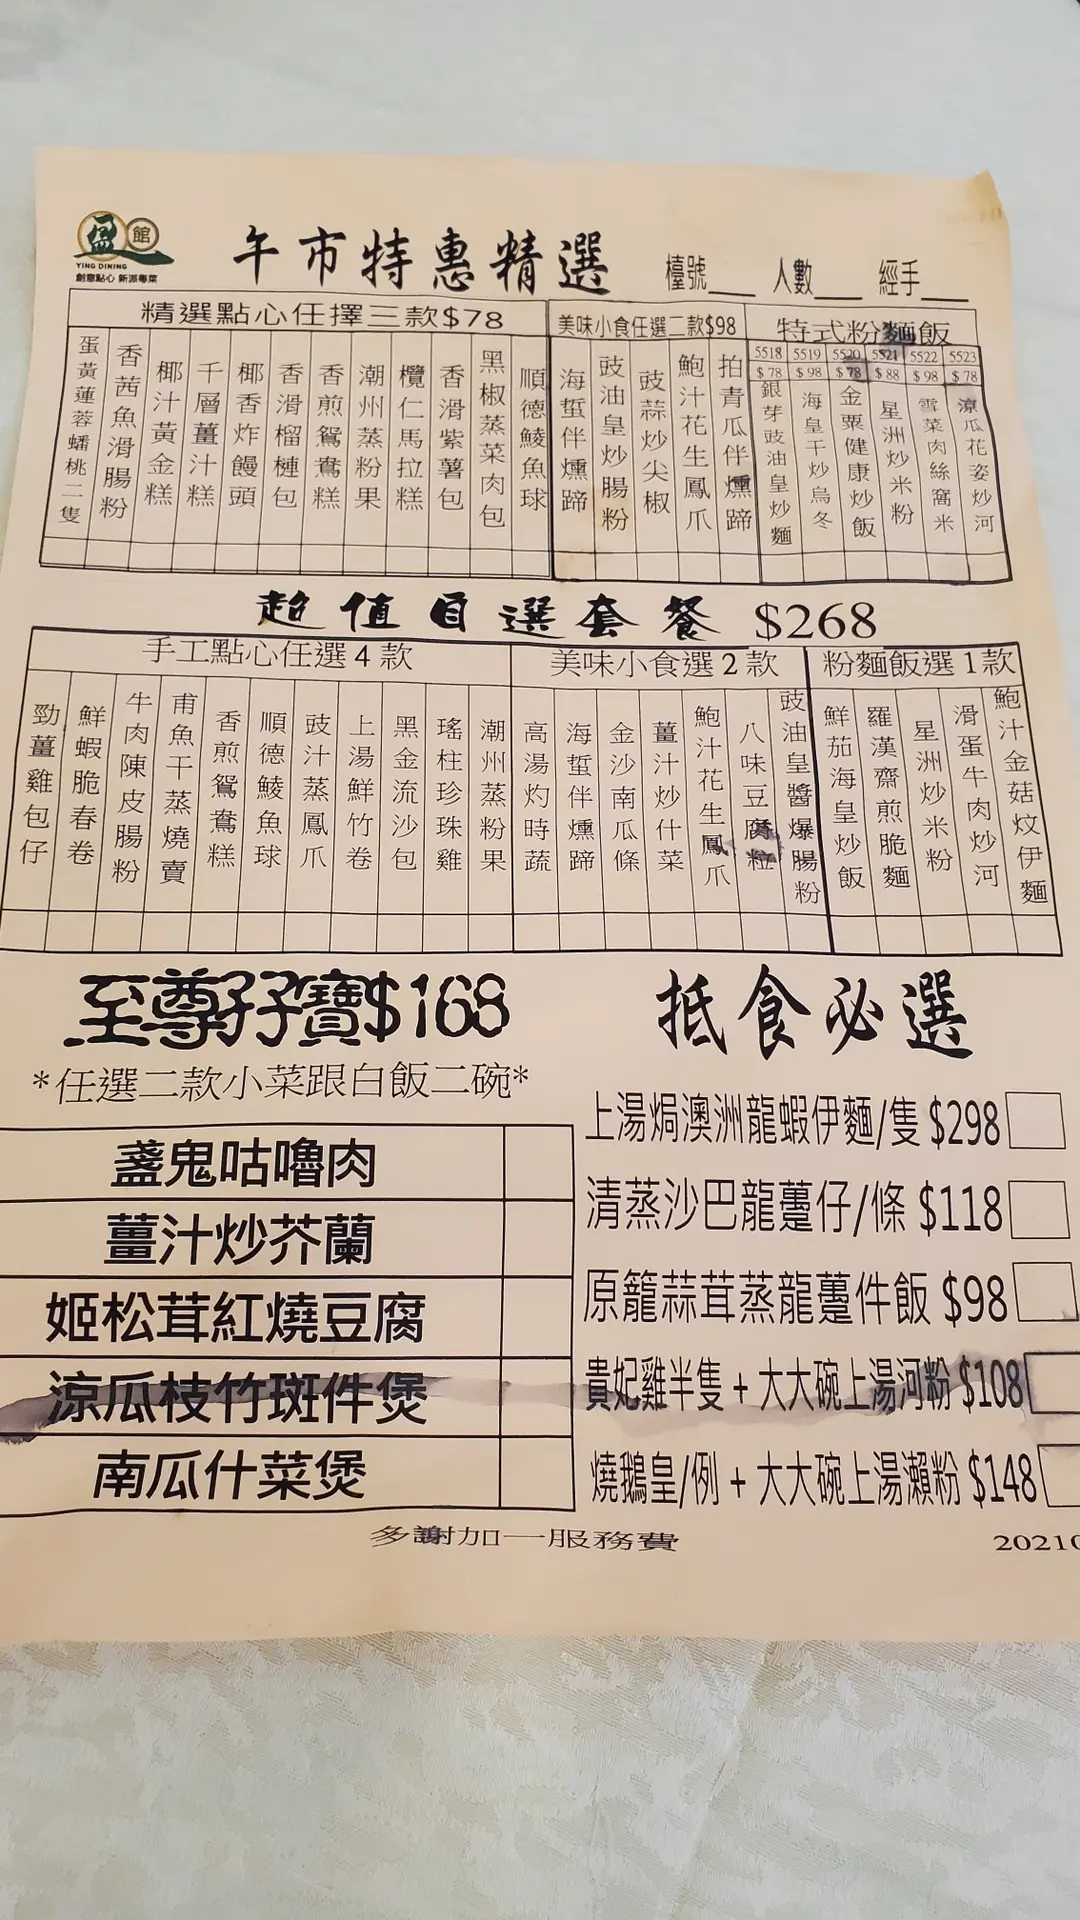 盈館
YING DINING
創意點心 新派粵菜
午市特惠精選
檯號 人數 經手
精選點心任擇三款$78
蛋黃蓮蓉蟠桃二隻
香茜魚滑腸粉
椰汁黃金糕
千層薑汁糕
椰香炸饅頭
香滑榴槤包
香煎鴛鴦糕
潮州蒸粉果
欖仁馬拉糕
香滑紫薯包
黑椒蒸菜肉包
順德鯪魚球
美味小食任選二款$98
海蜇伴燻蹄
豉油皇炒腸粉
豉蒜炒尖椒
鮑汁花生鳳爪
拍青瓜伴燻蹄
特式粉麵飯
5518 5519 5520 5521 5522 5523
$78 $98 $78 $88 $98 $78
銀芽豉油皇炒麵
海皇干炒烏冬
金粟健康炒飯
星洲炒米粉
雪菜肉絲窩米
涼瓜花姿炒河
超值自選套餐 $268
手工點心任選4款
勁薑雞包仔
鮮蝦脆春卷
牛肉陳皮腸粉
甫魚干蒸燒賣
香煎鴛鴦糕
順德鯪魚球
豉汁蒸鳳爪
上湯鮮竹卷
黑金流沙包
瑤柱珍珠雞
潮州蒸粉果
美味小食選2款
高湯灼時蔬
海蜇伴燻蹄
金沙南瓜條
薑汁炒什菜
鮑汁花生鳳爪
八味豆腐粒
豉油皇醬爆腸粉
粉麵飯選1款
鮮茄海皇炒飯
羅漢齋煎脆麵
星洲炒米粉
滑蛋牛肉炒河
鮑汁金菇炆伊麵
至尊孖寶$168
*任選二款小菜跟白飯二碗*
盞鬼咕嚕肉
薑汁炒芥蘭
姬松茸紅燒豆腐
涼瓜枝竹斑件煲
南瓜什菜煲
抵食必選
上湯焗澳洲龍蝦伊麵/隻 $298
清蒸沙巴龍躉仔/條 $118
原籠蒜茸蒸龍躉件飯 $98
貴妃雞半隻 + 大大碗上湯河粉 $108
燒鵝皇/例 + 大大碗上湯瀨粉 $148
多謝加一服務費
20210